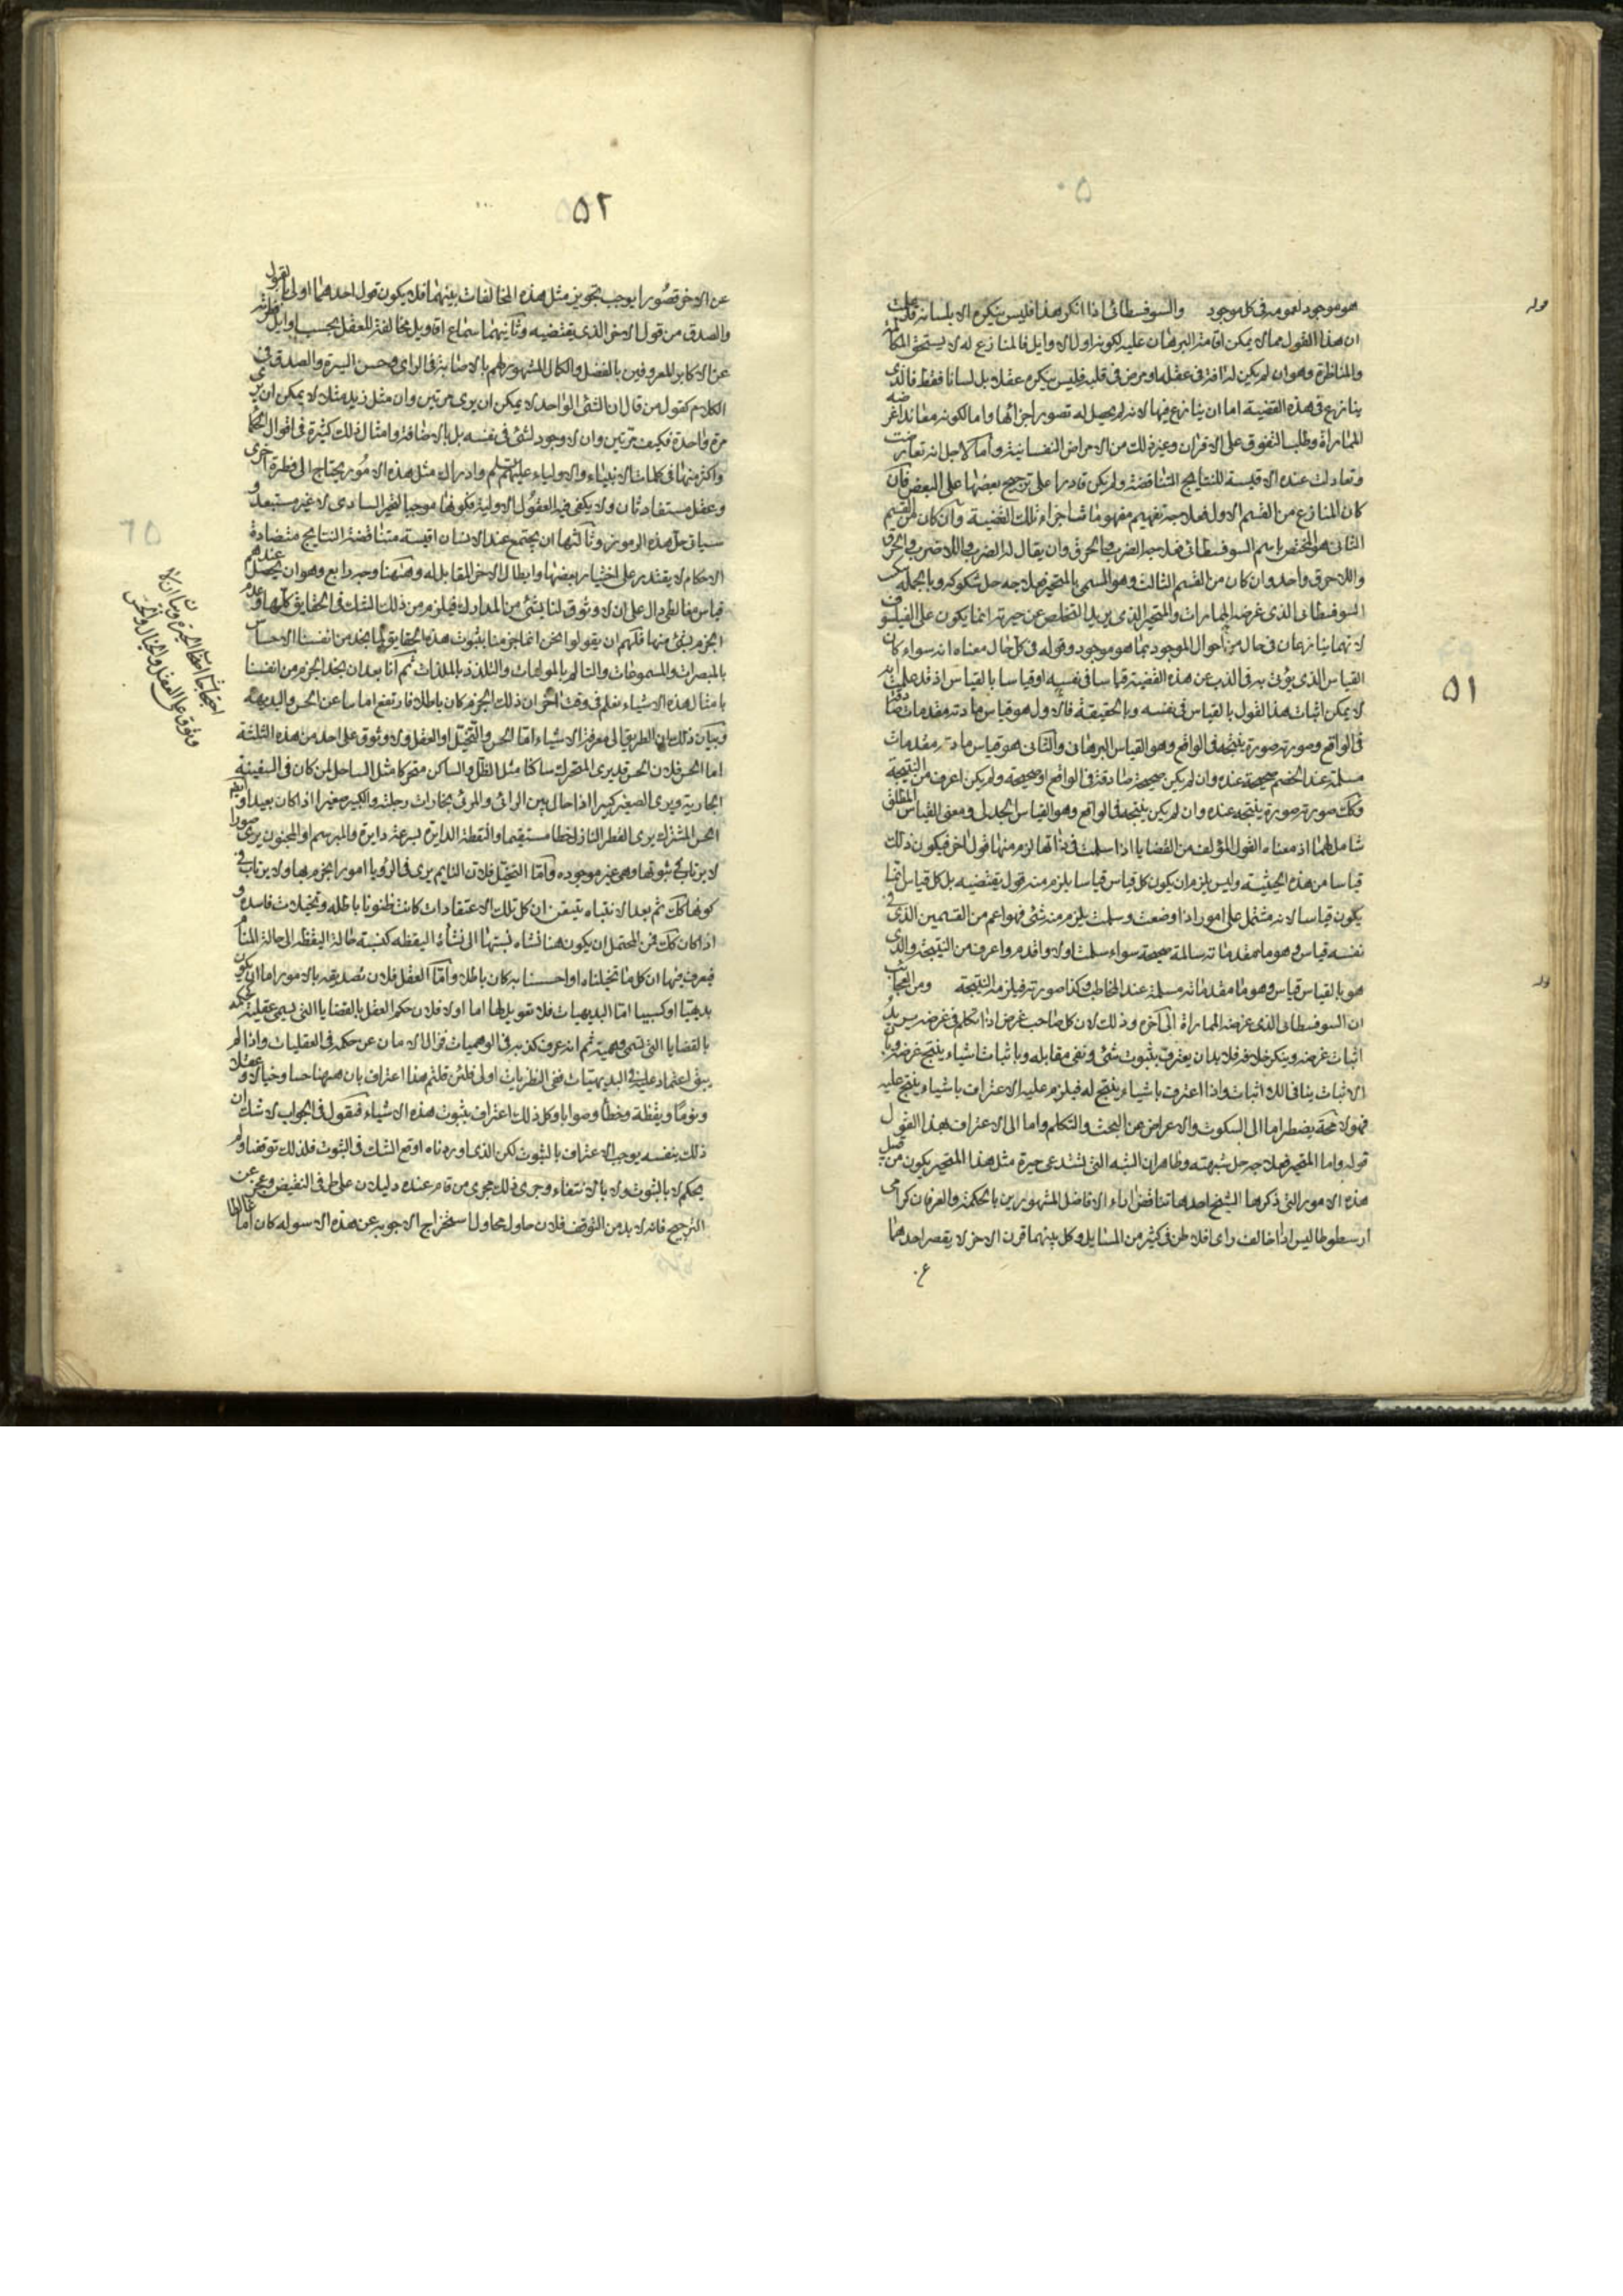 ۵۱
هو موجود لعمومه فى كل موجود والسوفسطائى اذا انكر هذا فليس ينكره الا بلسانه قد علمت
ان هذا القول مما لا يمكن اقامة البرهان عليه لكونه اول الاوايل فالمنازع له لا يستحق المكالمة
والمناظرة وهو ان لم يكن له افة فى عقله او مرض فى قلبه فليس ينكره عقلا بل لسانا فقط فالذى
ينازع فى هذه القضية اما ان ينازع فيها لانه لم يحصل له تصور اجزائها واما لكونه معاندا غرضه
المماراة وطلب التفوق على الاقران وغير ذلك من الامراض النفسانية واما لاجل انه تعارضت
وتعادلت عنده الاقيسة للنتايج المتناقضة ولم يكن قادرا على ترجيح بعضها على البعض فان
كان المنازع من القسم الاول فعلاجه تفهيم مفهومات اجزاء تلك القضية وان كان من القسم
الثانى هو المختص باسم السوفسطائى فعلاجه الضرب والحرق وان يقال له الضرب واللاضرب والحرق
واللاحرق واحد وان كان من القسم الثالث وهو المسمى بالمتحير فعلاجه حل شكوكه وبالجملة تبكيت
السوفسطائى الذى غرضه المماراة والمتحير الذى يريد التخلص عن حيرته انما يكون على الفيلسوف
لانهما ينازعان فى حال من احوال الموجود بما هو موجود وقوله فى كل حال معناه انه سواء كان
القياس الذى يؤتى به فى الذب عن هذه القضية قياسا فى نفسه او قياسا بالقياس اذ قد علمت انه
لا يمكن اثبات هذا القول بالقياس فى نفسه وبالحقيقة فالاول هو قياس مادته مقدمات صادقة
فى الواقع وصورته صورة ينتجه فى الواقع وهو القياس البرهانى والثانى هو قياس مادته مقدمات
مسلمة عند الخصم صحيحة عنده وان لم يكن صحيحة صادقة فى الواقع او صحيحة ولم يكن اعرف من النتيجة
وكك صورته صورة ينتجه عنده وان لم يكن ينتجه فى الواقع وهو القياس الجدلى ومعنى القياس المطلق
شامل لهما اذ معناه القول المؤلف من القضايا اذا سلمت فى ذاتها لزم منها قول اخر فيكون ذلك
قياسا من هذه الحيثية وليس يلزم ان يكون كل قياس قياسا يلزم منه قول يقتضيه بل كل قياس انما
يكون قياسا لانه مشتمل على امور اذا وضعت وسلمت يلزم منه شئ فهو اعم من القسمين الذى فى
نفسه قياس وهو ما مقدماته سالمة صحيحة سواء سلمت اولا واقدم واعرف من النتيجة والذى
هو بالقياس قياس وهو ما مقدماته مسلمة عند المخاطب وكذا صورته فيلزمه النتيجة ومن العجائب
ان السوفسطائى الذى غرضه المماراة الى آخره وذلك لان كل صاحب غرض اذا تكلم فى غرضه يريد
اثبات غرضه وينكر خلافه فلا بد ان يعترف بثبوت شئ ونفى مقابله وباثبات اشياء ينتج غرضه وبان
الاثبات ينافى اللااثبات واذا اعترف باشياء ينتج له فيلزم عليه الاعتراف باشياء ينتج عليه
فهو لا محة يضطر اما الى السكوت والاعراض عن البحث والتكلم واما الى الاعتراف بهذا القول
قوله واما المتحير فعلاجه حل شبهته وظاهر ان الشبه التى تستدعى حيرة مثل هذا المتحير يكون من قبيل
هذه الامور التى ذكرها الشيخ احدها تناقض اراء الافاضل المشهورين بالحكمة والعرفان كرأى
ارسطوطاليس اذا خالف راى افلاطن فى كثير من المسايل وكل بينهما قرن الاخر لا يقصر احدهما
قوله
۵۲
عن الاخر قصورا يوجب تجويز مثل هذه المخالفات بينهما فلا يكون قول احدهما اولى بالقبول
والصدق من قول الاخر الذى يقتضيه وثانيهما سماع اقاويل مخالفة للعقل بحسب اوايل فطرته
عن الاكابر المعروفين بالفضل والكمال المشهور لهم بالاصابة فى الراى وحسن السيرة والصدق فى
الكلام كقول من قال ان الشئ الواحد لا يمكن ان يرى مرتين وان مثل زيد مثلا لا يمكن ان يرى
مرة واحدة فكيف مرتين وان لا وجود لشئ فى نفسه بل بالاضافة وامثال ذلك كثيرة فى اقوال الحكما
واكثر منها فى كلمات الانبياء والاولياء عليهم السلم وادراك مثل هذه الامور يحتاج الى فطرة اخرى
وعقل مستفاد ثان ولا يكفى فيه العقول الاولية فكونها موجبا لتحير السادى لا غير مستبعد و
سياتى حل هذه الرموز وثالثها ان يجتمع عند الانسان اقيسة متناقضة النتايج متضادة
الاحكام لا يقتدر على اختيار بعضها وابطال الاخر المقابل له وههنا وجه رابع وهو ان يحصل عندهم
قياس مغالطى دال على ان لا وثوق لنا بشئ من المدارك فيلزم من ذلك الشك فى الحقايق كلها وعدم
الجزم بشئ منها فلهم ان يقولوا نحن انما جزمنا بثبوت هذه الحقايق لما نجد من انفسنا الاحساس
بالمبصرات والمسموعات والتالم بالمولمات والتلذذ بالملذات ثم انا بعد ان نجد الجزم من انفسنا
بامثال هذه الاشياء نعلم فى وقت اخر ان ذلك الجزم كان باطلا فارتفع امانا عن الحس والبديهة
وبيان ذلك بان الطريق الى معرفة الاشياء اما الحس والتخيل او العقل ولا وثوق على احد من هذه الثلثة
اما الحس فلان الحس قد يرى المتحرك ساكنا مثل الظل والساكن متحركا مثل الساحل لمن كان فى السفينة
الجارية ويرى الصغير كبيرا اذا حال بين الرائى والمرئى بخارات رطبة والكبير صغيرا اذا كان بعيدا وايض
الحس المشترك يرى القطر النازل خطا مستقيما والنقطة الدايرة بسرعة دايرة والمبرسم او المجنون يرى صورا
لا يرتاب فى ثبوتها وهى غير موجوده واما التخيل فلان النايم يرى فى الرؤيا امورا يجزم بها ولا يرتاب فى
كونها كك ثم بعد الانتباه يتيقن ان كل تلك الاعتقادات كانت ظنونا باطله وتخيلات فاسده و
اذا كان كك فمن المحتمل ان يكون هنا نشاه نسبتها الى نشأة اليقظه كنسبة حالة اليقظه الى حالة المنام
فيعرف فيها ان كل ما تخيلناه او احسسنا به كان باطلا واما العقل فلان تصديقه بالامور اما ان يكون
بديهيا او كسبيا اما البديهيات فلا تعويل لها اما اولا فلان حكم العقل بالقضايا التى يسمى عقلية كحكمه
بالقضايا التى تسمى وهمية ثم انه عرف كذبه فى الوهميات فزال الامان عن حكمه فى العقليات واذا لم
يبق اعتماد عليه فى البديهيات ففى النظريات اولى فلئن قلتم هذا اعتراف بان ههنا حسا وخيالا وعقلا
ونوما ويقظة وخطأ وصوابا وكل ذلك اعتراف بثبوت هذه الاشياء فنقول فى الجواب لا شك ان
ذلك بنفسه يوجب الاعتراف بالثبوت لكن الذى اوردناه اوقع الشك فى الثبوت فلذلك توقفنا ولم
يحكم لا بالثبوت ولا بالانتفاء وجرى ذلك مجرى من قام عنده دليلان على طرفى النقيض وعجز عن
الترجيح فانه لا بد من التوقف فلان حاول محاول استخراج الاجوبه عن هذه الاسوله كان اما غالطا
وثوق على العقل والخيال والحس